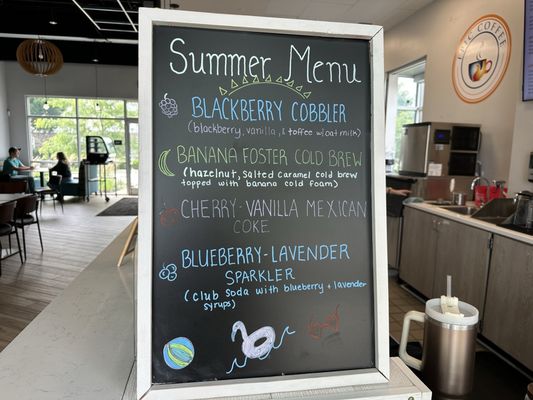 Summer Menu
BLACKBERRY COBBLER
(blackberry, vanilla, & toffee w/oat milk)
BANANA FOSTER COLD BREW
(hazelnut, salted caramel cold brew
topped with banana cold foam)
CHERRY-VANILLA MEXICAN
COKE
BLUEBERRY-LAVENDER
SPARKLER
(club soda with blueberry + lavender
syrups)
EPIC COFFEE